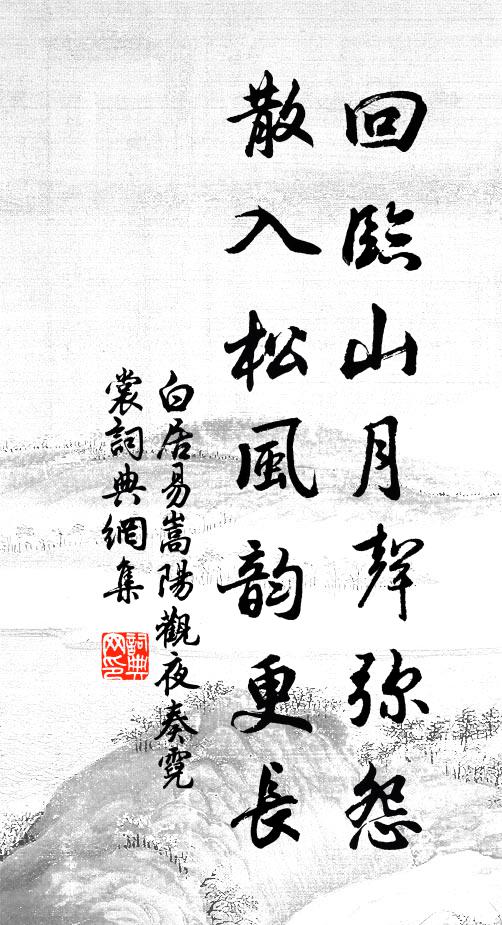 回臨山月聲弥怨
散入松風韵更長
白居易嵩陽觀夜奏霓
裳詞典網集
詞典
网印